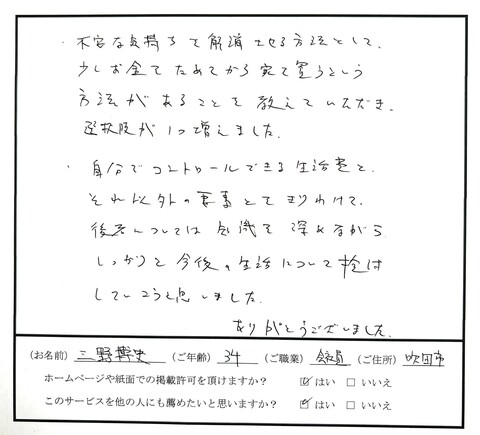 ・不安な気持ちを解消させる方法として、
少しお金をためてから家を買うという
方法があることを教えていただき、
選択肢が1つ増えました。
・自分でコントロールできる生活費と、
それ以外の要素とをきりわけて、
後者については知識を深めながら
しっかりと今後の生活について検討
していこうと思いました。
ありがとうございました。
(お名前) 三野 博史 (ご年齢) 34 (ご職業) 会社員 (ご住所) 吹田市
ホームページや紙面での掲載許可を頂けますか? ☑ はい □ いいえ
このサービスを他の人にも薦めたいと思いますか? ☑ はい □ いいえ